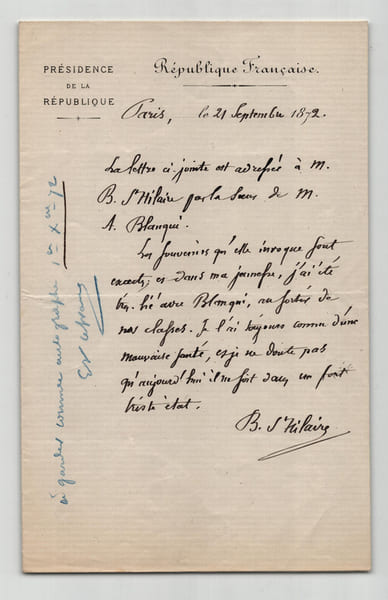 PRÉSIDENCE
DE LA
RÉPUBLIQUE
République Française.
Paris, le 21 Septembre 1872.
La lettre ci-jointe est adressée à M.
B. St Hilaire par la sœur de M.
A. Blanqui.
Les souvenirs qu'elle invoque sont
exacts; et dans ma jeunesse, j'ai été
très lié avec Blanqui, au sortir de
nos classes. Je l'ai toujours connu d'une
mauvaise santé, et je ne doute pas
qu'aujourd'hui il ne soit dans un fort
triste état.
B. St Hilaire
à garder comme autographe 1er Xbre 72